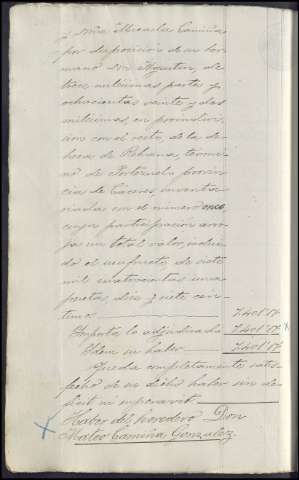 y niña Micaela Camiña
por disposición de su her
mano Don Agustin, de
trece milésimas partes y
ochocientas veinte y dos
milésimas, en proindivi
sion con el resto, de la de
hesa de Rehana, térmi
no de Portezuelo provin
cia de Cáceres inventa
riada con el número once
cuya participación arro
ja un total valor, inclui
do el usufructo, de siete
mil cuatrocientas una
pesetas, diez y siete cen
timos 7.401'17
Importa lo adjudicado 7.401'17
Idem su haber 7.401'17
Queda completamente satis
fecho de su dicho haber sin de
ficit ni superavit.
Haber del heredero Don
Mateo Camiña Gonzalez.